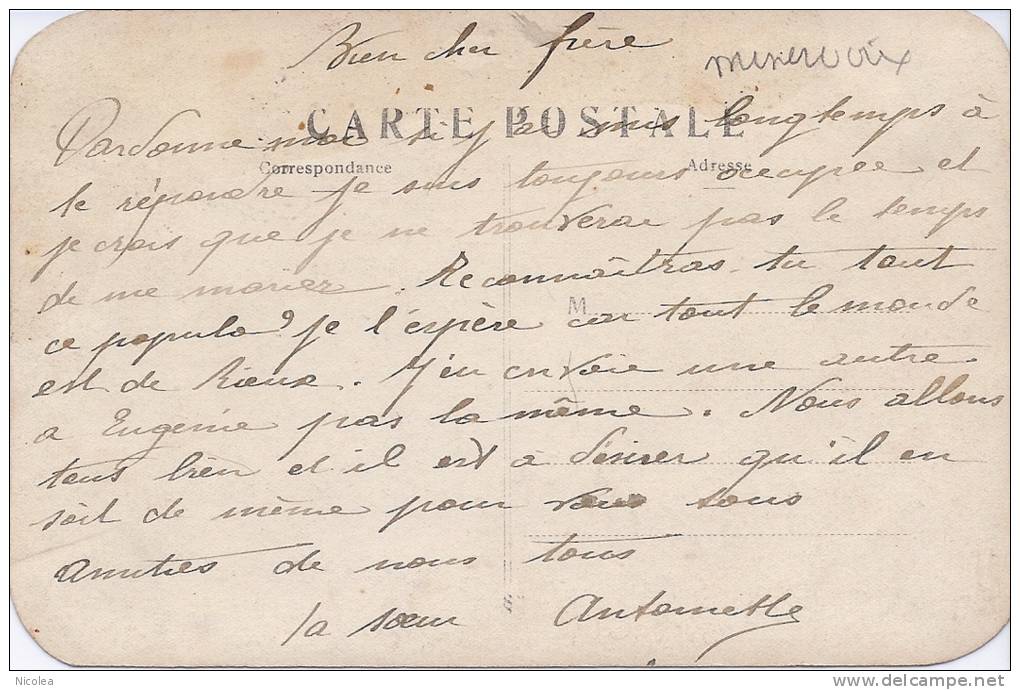 Bien cher frère
minervoix
CARTE POSTALE
Pardonne moi si j'ai mis longtemps à
Correspondance
Adresse
te répondre je suis toujours occupée et
je crois que je ne trouverai pas le temps
de me marier. Reconnaîtras-tu tout
M
ce populo? je l'espère car tout le monde
est de Rieux. J'en envoie une autre
a Eugénie pas la même. Nous allons
tous bien et il est a désirer qu'il en
soit de même pour vous tous
Amitiés de nous tous
ta sœur Antoinette
Nicolea
www.delcampe.net